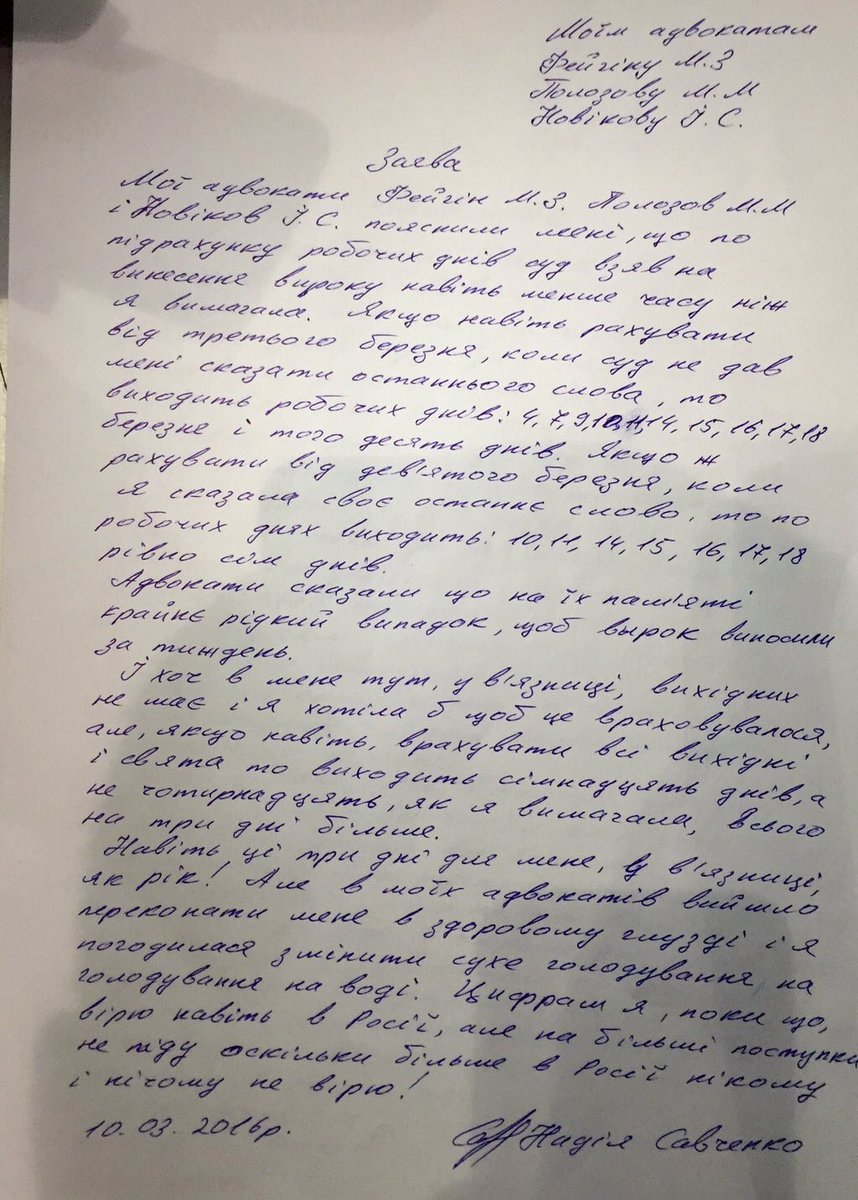 Моїм адвокатам
Фейгіну М.З
Полозову М.М
Новікову І.С.
Заява
Мої адвокати Фейгін М.З. Полозов М.М
і Новіков І.С. пояснили мені, що по
підрахунку робочих днів суд взяв на
винесення вироку навіть менше часу ніж
я вимагала. Якщо навіть рахувати
від третього березня, коли суд не дав
мені сказати останнього слова, то
виходить робочих днів: 4,7,9,10,11,14,15,16,17,18
березня і того десять днів. Якщо ж
рахувати від дев'ятого березня, коли
я сказала своє останнє слово, то по
робочих днях виходить: 10,11,14,15,16,17,18
рівно сім днів.
Адвокати сказали що на їх пам'яті
крайнє рідкий випадок, щоб вырок виносили
за тиждень.
І хоч в мене тут, у в'язниці, вихідних
не має і я хотіла б щоб це враховувалося,
але, якщо навіть, врахувати всі вихідні
і свята то виходить сімнадцять днів, а
не чотирнадцять, як я вимагала, всього
на три дні більше.
Навіть ці три дні для мене, у в'язниці,
як рік! Але в моїх адвокатів вийшло
переконати мене в здоровому глузді і я
погодилася змінити сухе голодування на
голодування на воді. Цифрам я, поки що,
вірю навіть в Росії, але на більші поступки
не піду оскільки більше в Росії нікому
і нічому не вірю!
10.03.2016р. Надія Савченко